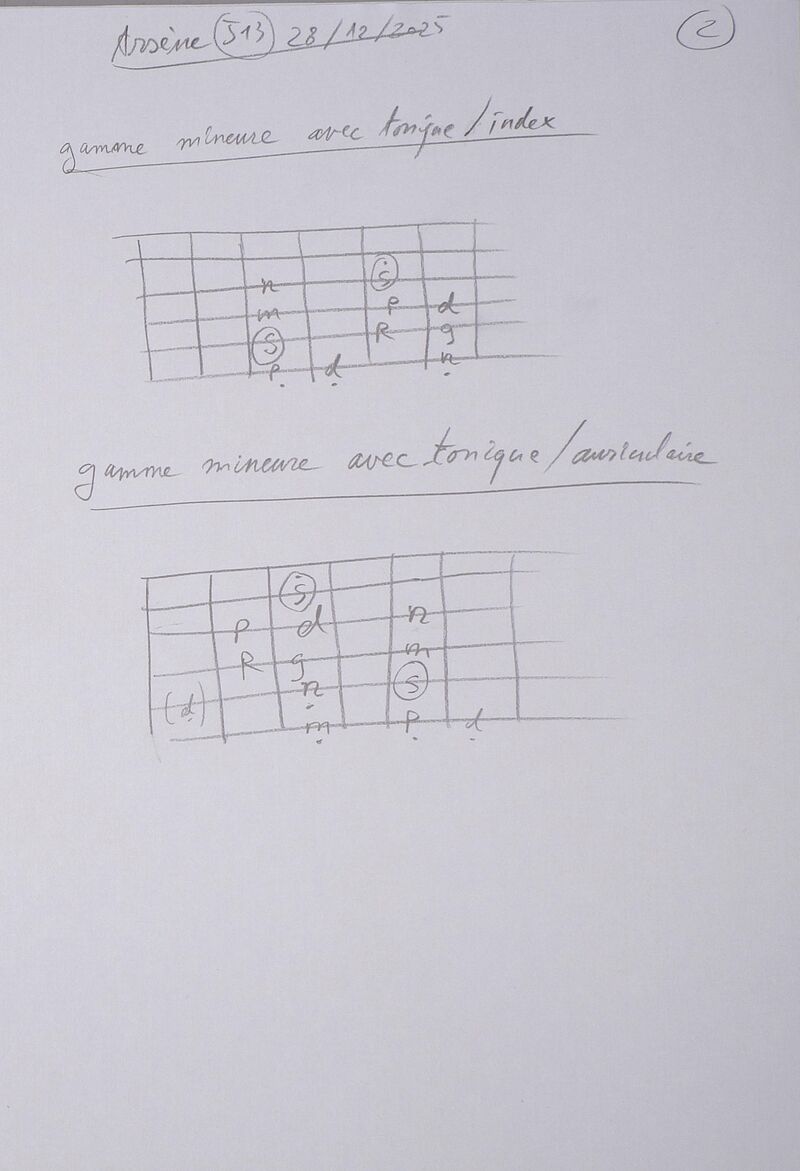 Arsène 513 28/12/2025
2
gamme mineure avec tonique/index
n ṡ
m P d
S R g
P d n
gamme mineure avec tonique/auriculaire
ṡ
P d n
R g m
(d) n S
m P d